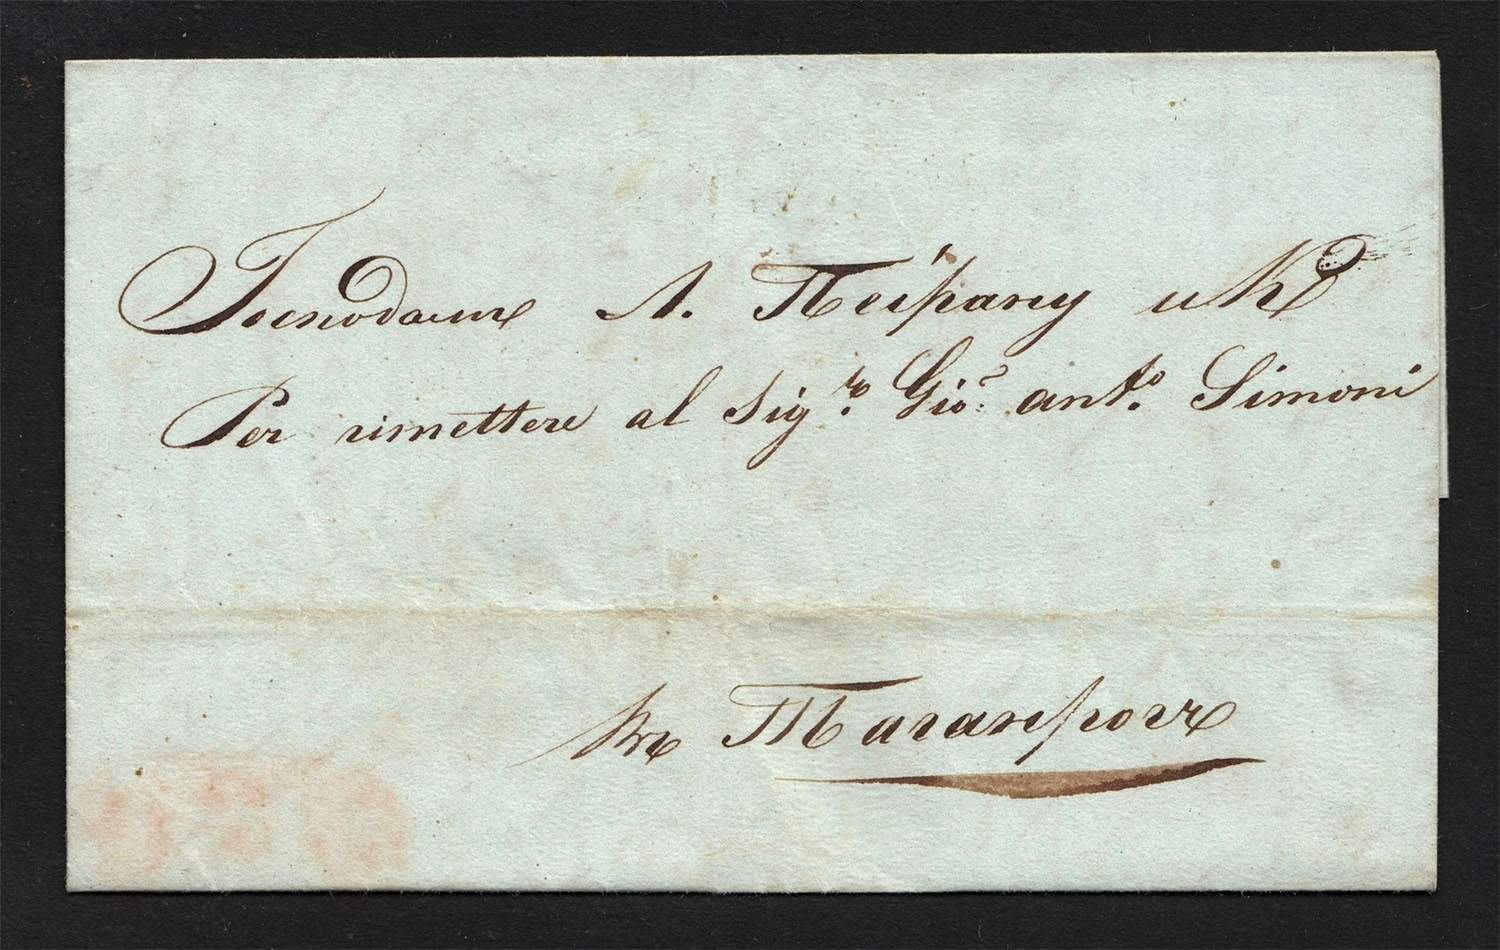 Господамъ А. Пеірану и Ко
Per rimettere al Sigr.o Gio. ant.o Simoni
въ Таганрогъ